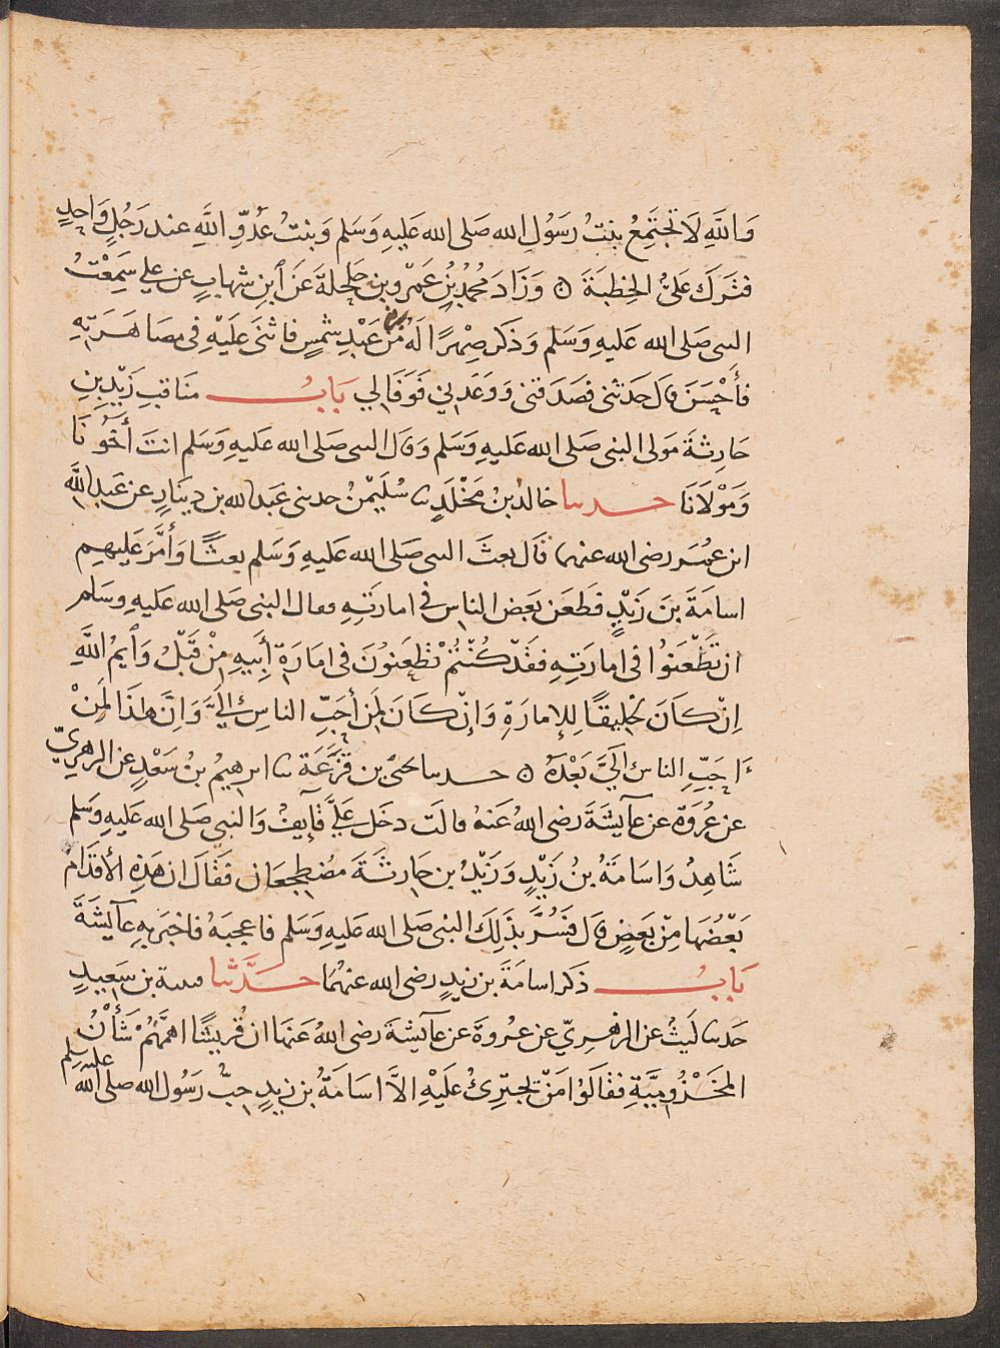 وَاللهِ لَا تَجْتَمِعُ بِنْتُ رَسُوْلِ الله صَلى الله عَليهِ وَسَلم وَبِنتُ عَدُوِّ اللهِ عند رَجُلٍ وَاحِدٍ
فتَرَكَ عَليُّ الخِطبَةَ ۞ وَزَادَ مُحُمدُ بْنُ عَمْرِوبنِ حَلْحلةَ عَنِ ٱبنِ شهابٍ عن علي سَمِعْتُ
النبى صَلى الله عَليهِ وَسَلم وَذكَر صِهْرًا لَهُ مِنْ بنى عَبْدِ شمسٍ فاثنَى عَلَيْهِ فى مصَاهَرَتِهِ
فأَحْسَنَ قال حَدثنى فصَدَقنى وَوَعَدنِي فَوَفَا لِي بَابُ مناقبِ زَيْدِبنِ
حَارثةَ مَولى النبى صَلى الله عَليهِ وَسَلم وَقال النبى صَلى الله عَليهِ وَسَلم انتَ أَخُونَا
وَمَوْلَانَا حدثنا خالد بنُ مَخْلَدٍ ثنا سُلَيْمٰنُ حدثنى عَبدالله بن دِينارٍ عن عَبدِالله
ابن عُمَر رضى الله عنهما قال بعثَ النبى صَلى الله عَليهِ وَسَلم بعثًا وَأَمَّرَ عَليهِم
اسامَةَ بنَ زَيْدٍ فطَعَن بَعْض الناس فى امارَتِهِ فقال النبى صَلى الله عَليهِ وسَلم
ان تَطْعَنوُا فى امارَتِهِ فقَدْ كُنْتُمْ تَطْعَنوُنَ فى امَارَةِ أَبِيهِ مِنْ قَبْلُ وَٱيمُ اللهِ
اِنْ كَانَ لَخَلِيقًا لِلإِمارَةِ وَإنْ كَانَ لَمِن أَحَبِّ الناسِ اِليَّ وَاِنَّ هٰذَا لَمِنْ
اَحَبِّ الناسِ اِلَيَّ بَعْدَهُ ۞ حدثنا يحيى بن قَزَعَة ثنا ابرهيمُ بنُ سَعْدٍ عن الزهرِيّ
عن عُرْوَةَ عن عآيشَةَ رضى الله عَنهُ قالت دخَل عَلَيَّ قآيِفُ وَالنبي صَلى الله عَليهِ وَسَلم
شَاهِدُ وَاسَامَةُ بنُ زَيْدٍ وَزَيْدُ بن حَارثَةَ مُضطجِعَانِ فَقَالَ ان هَذِهِ الأقدَامُ
بَعْضُهَا مِنْ بَعضٍ قال فَسُرَّ بذَلِكَ النبى صَلى الله عَليهِ وَسَلم فاعجبَهُ فاخبَر بِهِ عآيشَةَ
بَابُ ذكر اسامَةَ بن زيدٍ رضى الله عنهُمَا حَدَّثنا قتيبة بن سَعِيدٍ
حَدثنا لَيثُ عن الزهرِيّ عن عروةَ عن عآيشة رضى اللهُ عَنهَا ان قُرَيشًا اهمَّهُمْ شَأْنُ
المَخْزُومِيَّةِ فقالوُا مَنْ يَجترِئُ عَلَيْهِ الاَّ اسامَةُ بن زيدٍ حِبُّ رَسُول الله صلى الله عليه وسلم